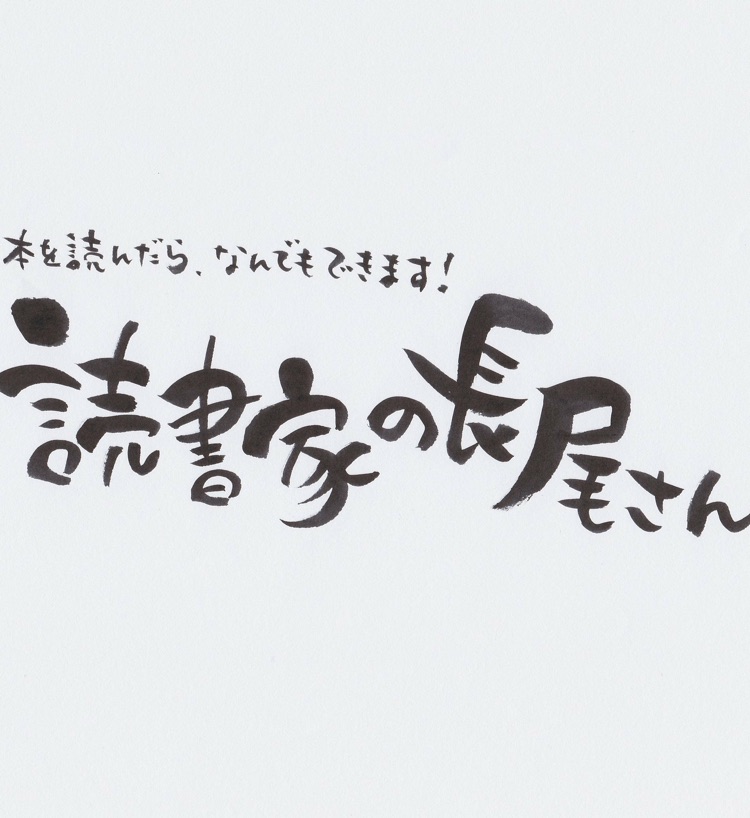 本を読んだら、なんでもできます!
読書家の長尾さん